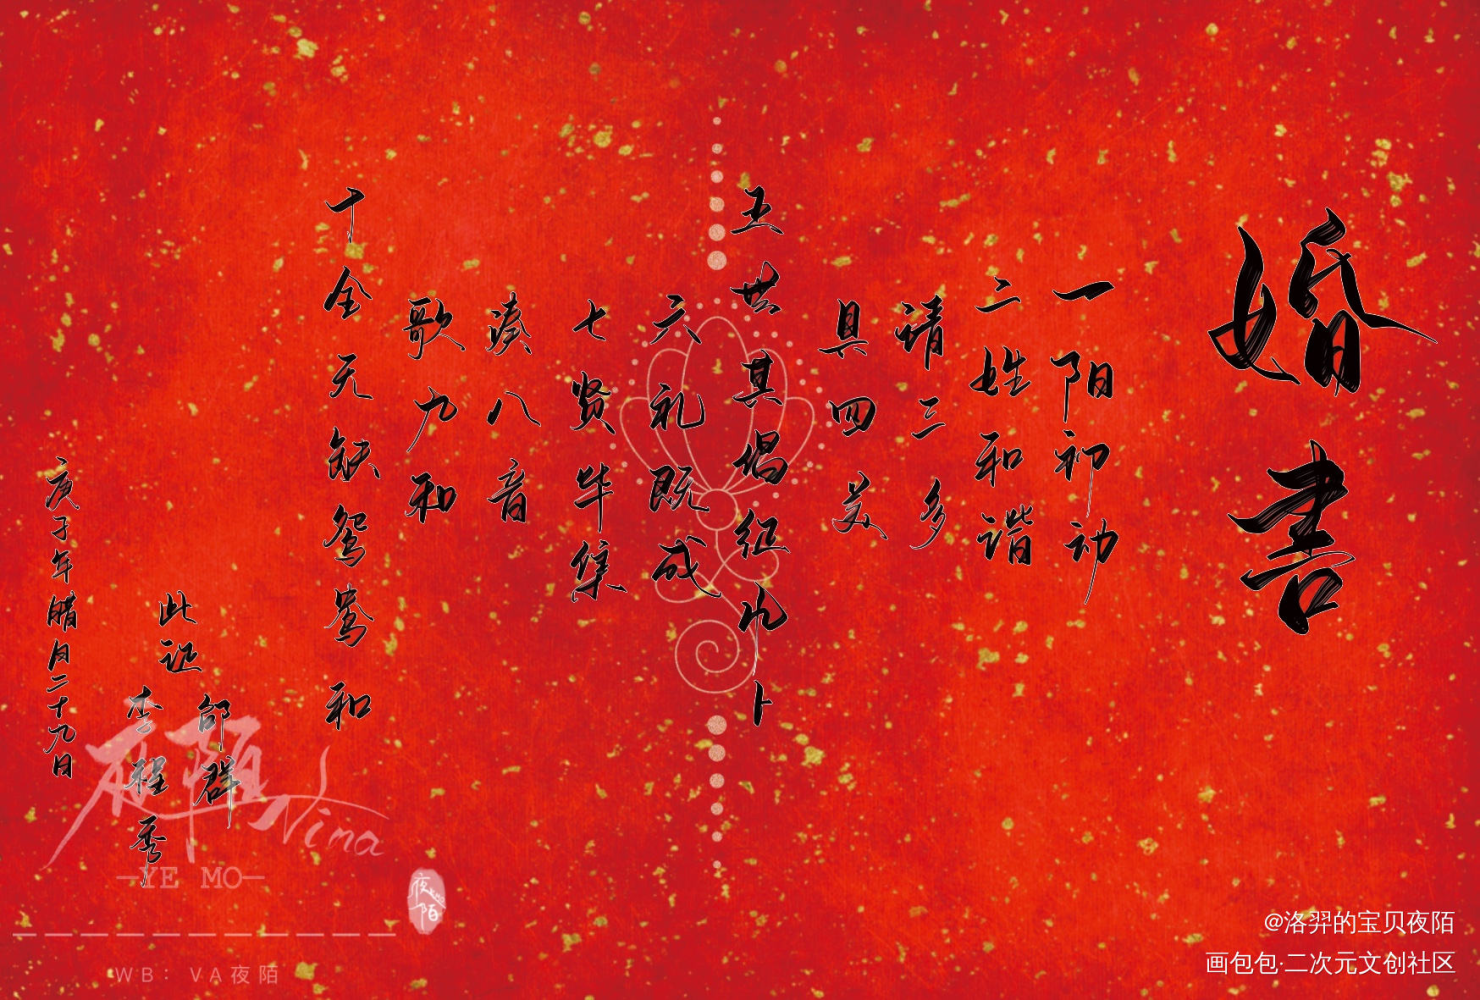 婚书
一阳初动
二姓和谐
请三多
具四美
五世其倡征凤卜
六礼既成
七贤毕集
凑八音
歌九和
十全无缺鸳鸯和
此证
邰群
李程秀
庚子年腊月二十九日
夜陌
Nina
YE MO
夜陌
WB：VA夜陌
@洛羿的宝贝夜陌
画包包·二次元文创社区